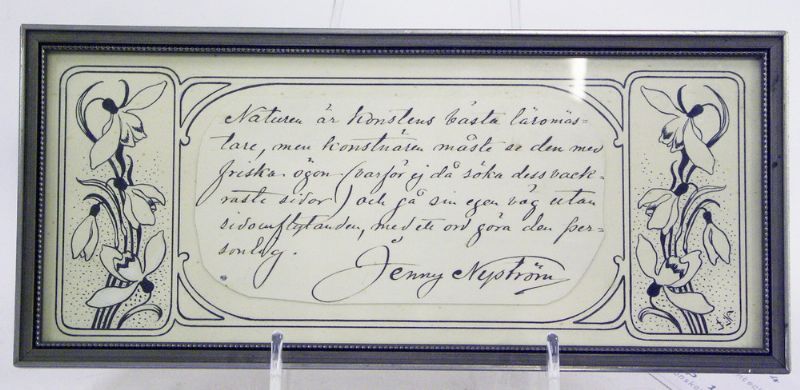 Naturen är konstens bästa läromäs=
tare, men konstnären måste se den med
friska ögon (varför ej då söka dess vack=
raste sidor) och gå sin egen väg utan
sidoinflytanden, med ett ord göra den per=
sonlig.
Jenny Nyström